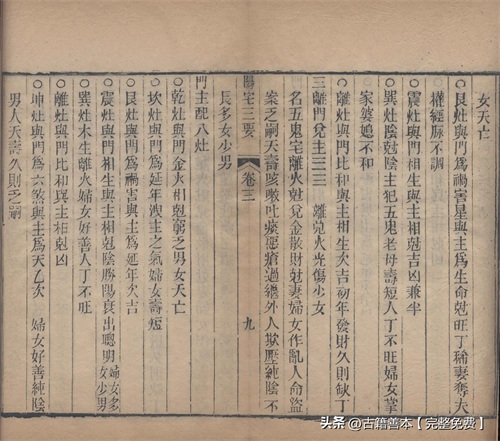 女夭亡
○艮灶與門爲禍害星與主爲生命尅旺丁稀妻奪夫
權經脉不調
○震灶與門相生與主相尅吉凶兼半
○巽灶陰尅陰主犯五鬼老母壽短人丁不旺婦女掌
家婆媳不和
○離灶與門比和與主相生次吉初年發財久則缺丁
三離門兌主三三 離兌火光傷少女
名五鬼宅離火尅兌金散財尅妻婦女作亂人命盜
案乏嗣夭壽咳嗽吐痰惡瘡過繼外人欺壓純陰不
長多女少男
陽宅三要 卷三 九
門主配八灶
○乾灶與門金火相尅躬乏男女夭亡
○坎灶與門爲延年洩主之氣婦女壽短
○艮灶與門爲禍害與主爲延年次吉
○震灶與門相生與主相尅陰勝陽衰出聰明婦女多女少男
○巽灶木生離火婦女好善人丁不旺
○離灶與門比和與主相尅凶
○坤灶與門爲六煞與主爲天乙次 婦女好善純陰
男人夭壽久則乏嗣
头条@古籍善本【完整免费】